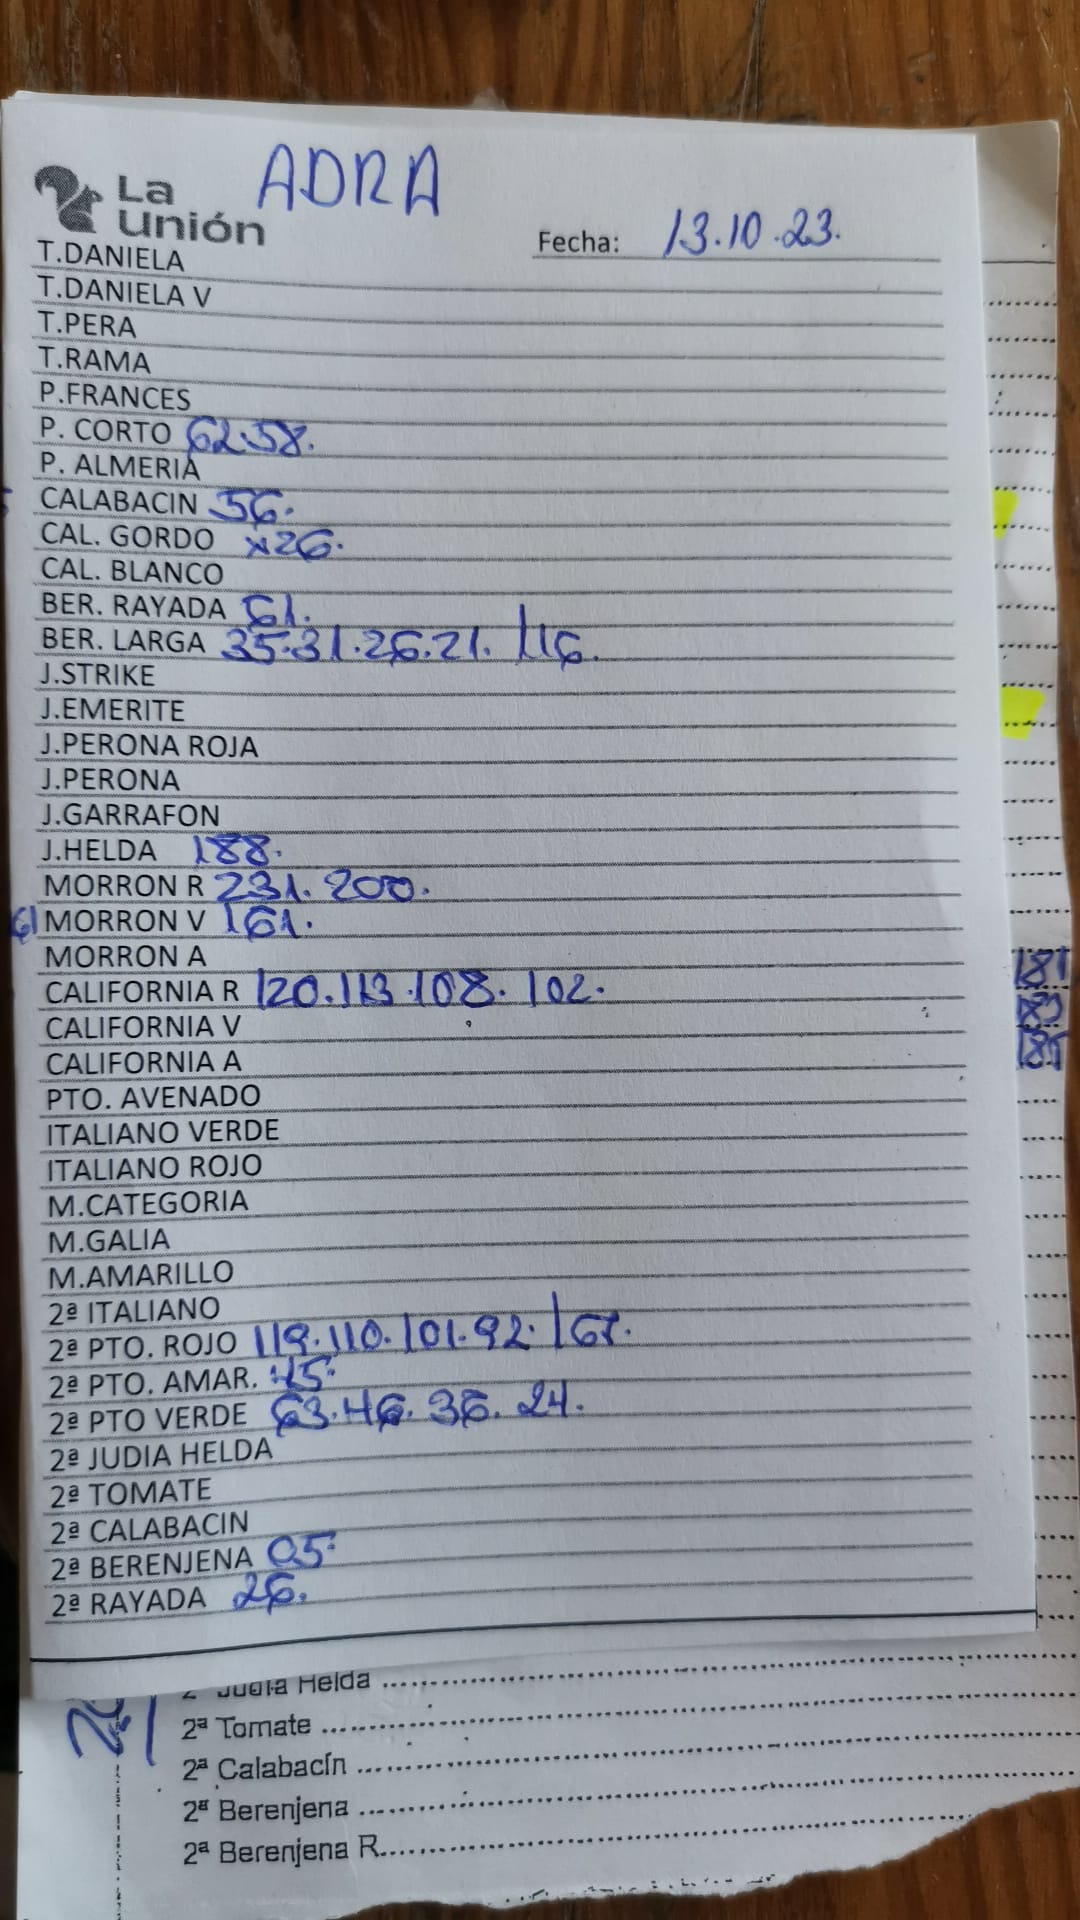 La
Unión
ADRA
Fecha: 13.10.23.
T.DANIELA
T.DANIELA V
T.PERA
T.RAMA
P.FRANCES
P. CORTO 62.58.
P. ALMERIA
CALABACIN 56.
CAL. GORDO x26.
CAL. BLANCO
BER. RAYADA 61.
BER. LARGA 35.31.26.21. |16.
J.STRIKE
J.EMERITE
J.PERONA ROJA
J.PERONA
J.GARRAFON
J.HELDA 188.
MORRON R 231.200.
61 MORRON V 161.
MORRON A
CALIFORNIA R 120.113.108.102.
CALIFORNIA V
CALIFORNIA A
PTO. AVENADO
ITALIANO VERDE
ITALIANO ROJO
M.CATEGORIA
M.GALIA
M.AMARILLO
2ª ITALIANO
2ª PTO. ROJO 119.110.101.92. |67.
2ª PTO. AMAR. 45.
2ª PTO VERDE 63.46.36.24.
2ª JUDIA HELDA
2ª TOMATE
2ª CALABACIN
2ª BERENJENA 05.
2ª RAYADA 26.
181
183
185
2ª Judía Helda
2ª Tomate
2ª Calabacín
2ª Berenjena
2ª Berenjena R